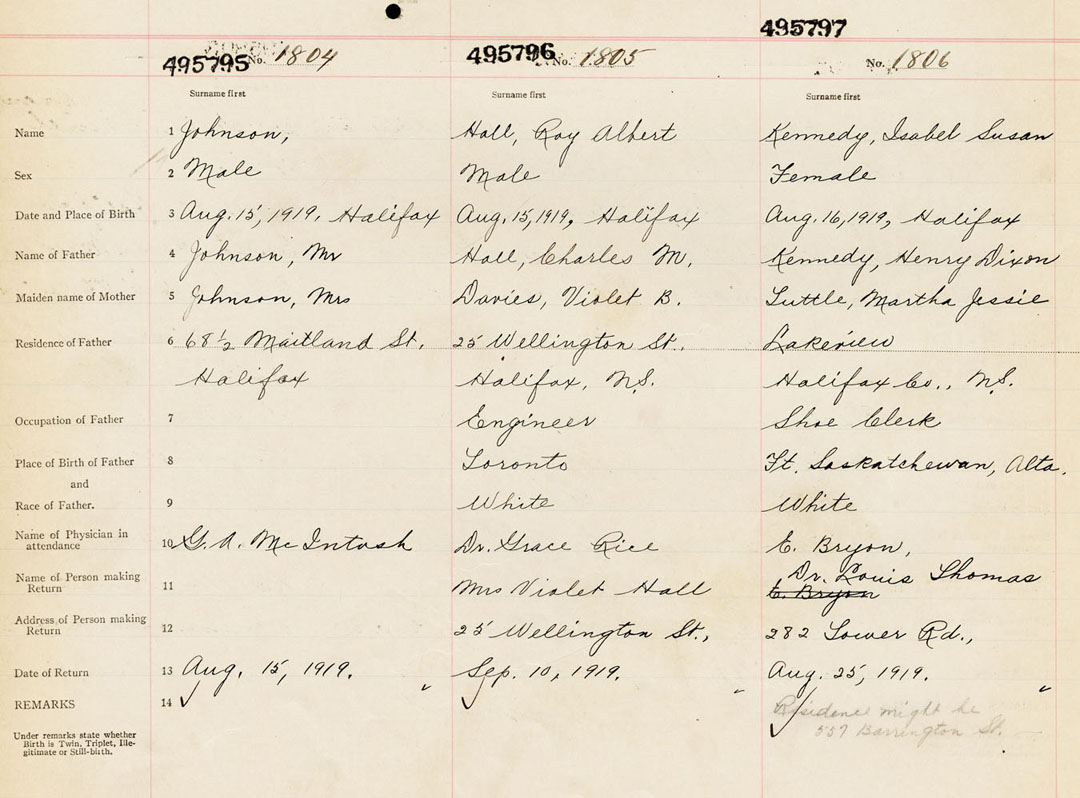 495795 No. 1804 495796 No. 1805 495797 No. 1806
Surname first Surname first Surname first
Name 1 Johnson, Hall, Roy Albert Kennedy, Isabel Susan
Sex 2 Male Male Female
Date and Place of Birth 3 Aug. 15, 1919. Halifax Aug. 15, 1919, Halifax Aug. 16, 1919, Halifax
Name of Father 4 Johnson, Mr Hall, Charles M. Kennedy, Henry Dixon
Maiden name of Mother 5 Johnson, Mrs Davies, Violet B. Tuttle, Martha Jessie
Residence of Father 6 68½ Maitland St. 25 Wellington St., Lakeview
Halifax Halifax, N.S. Halifax Co., N.S.
Occupation of Father 7 Engineer Shoe Clerk
Place of Birth of Father 8 Toronto Ft. Saskatchewan, Alta.
and
Race of Father. 9 White White
Name of Physician in attendance 10 G. A. McIntosh Dr. Grace Rice E. Bryon,
Name of Person making Return 11 Mrs Violet Hall Dr. Louis Thomas
E. Bryon
Address of Person making Return 12 25 Wellington St., 282 Tower Rd.,
Date of Return 13 Aug. 15, 1919. Sep. 10, 1919. Aug. 25, 1919.
REMARKS 14 Residence might be
557 Barrington St.
Under remarks state whether
Birth is Twin, Triplet, Ille-
gitimate or Still-birth.